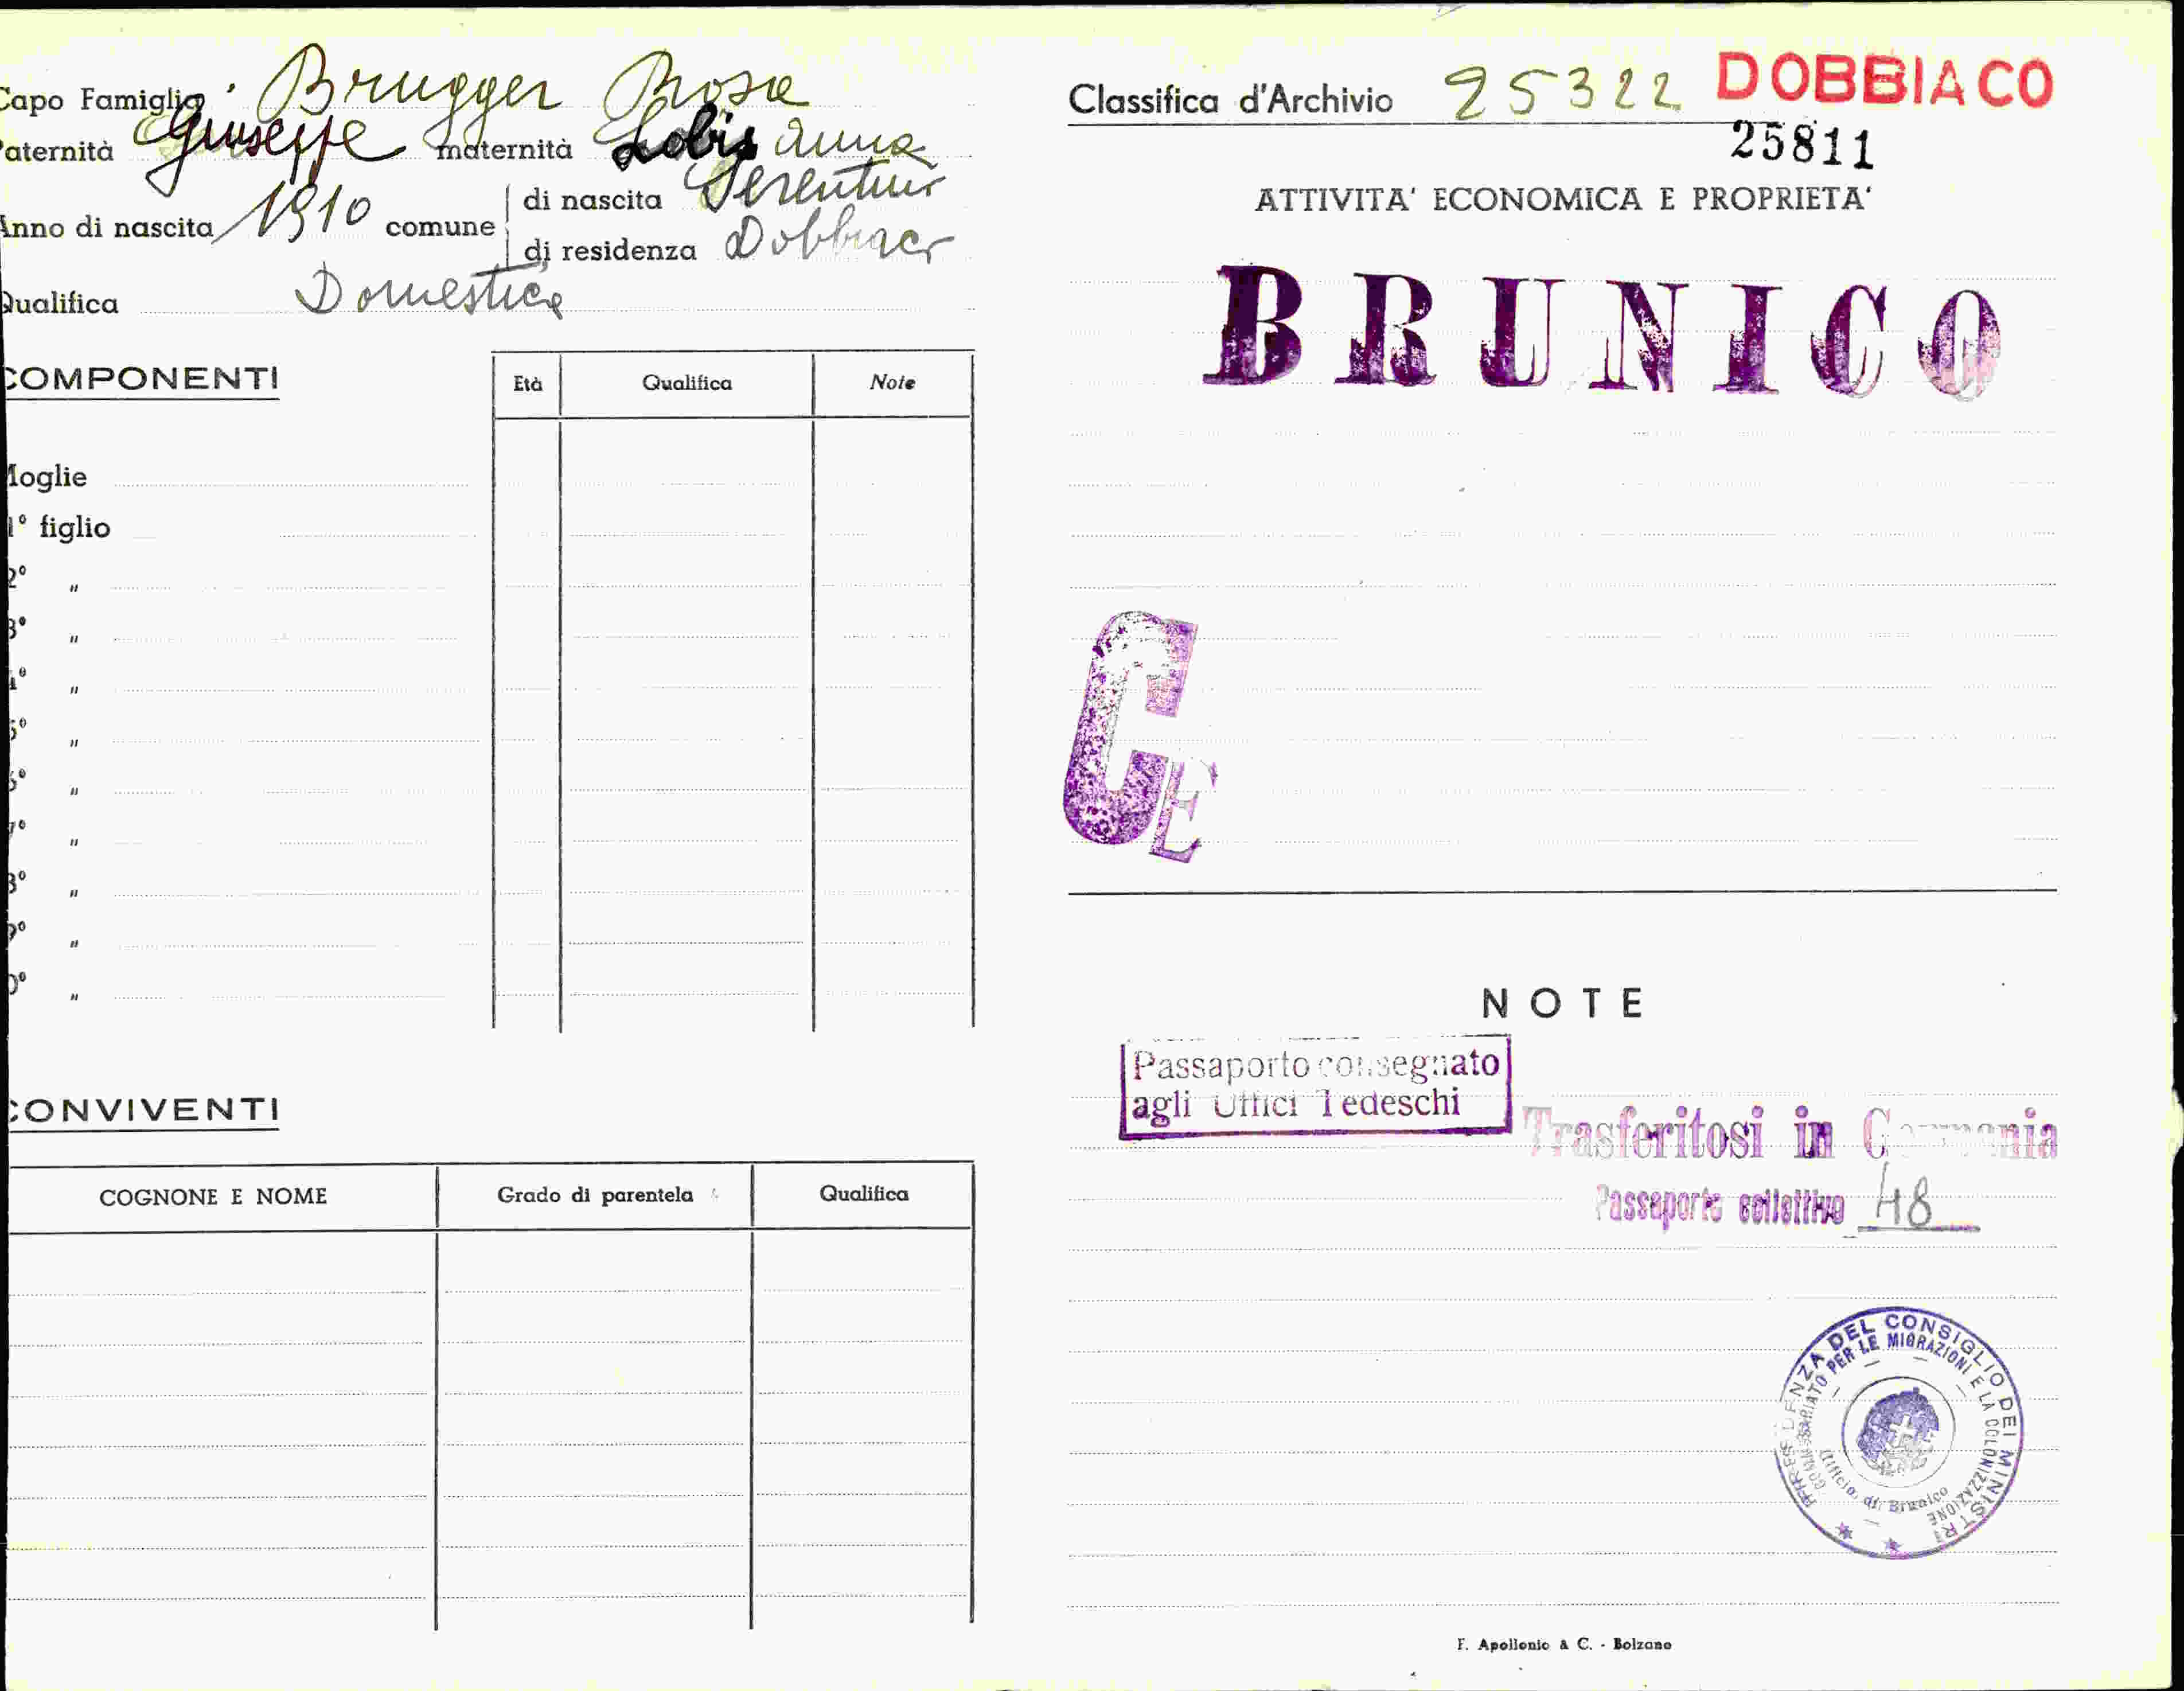 Capo Famiglia Brugger Rosa
Paternità Giuseppe maternità Lobis Anna
Anno di nascita 1910 comune di nascita Terentum
di residenza Dobbiaco
Qualifica Domestica
COMPONENTI Età Qualifica Note
Moglie
1° figlio
2° "
3° "
4° "
5° "
6° "
7° "
8° "
9° "
0° "
CONVIVENTI
COGNONE E NOME Grado di parentela Qualifica
Classifica d'Archivio 25322 DOBBIACO
25811
ATTIVITA' ECONOMICA E PROPRIETA'
BRUNICO
C E
NOTE
Passaporto consegnato
agli Uffici Tedeschi
Trasferitosi in Germania
Passaporto collettivo 48
PRESIDENZA DEL CONSIGLIO DEI MINISTRI
COMMISSARIATO PER LE MIGRAZIONI E LA COLONIZZAZIONE
Ufficio di Brunico
F. Apollonio & C. - Bolzano